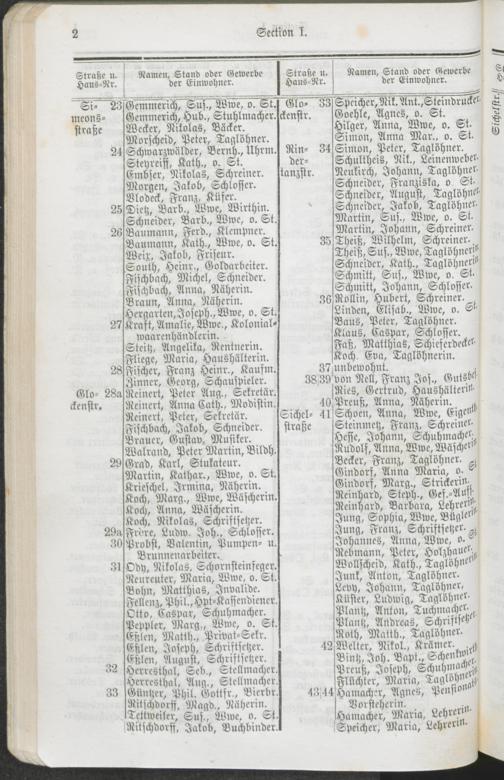 2
Section I.
Straße u.
Haus-Nr.
Namen, Stand oder Gewerbe
der Einwohner.
Si- 23 Gemmerich, Sus., Wwe, o. St.
meons- Gemmerich, Hub., Stuhlmacher.
straße Wecker, Nikolas, Bäcker.
Morscheid, Peter, Taglöhner.
24 Schwarzwälder, Bernh., Uhrm.
Steyreiff, Kath., o. St.
Embser, Nikolas, Schreiner.
Morgen, Jakob, Schlosser.
Blodeck, Franz, Küfer.
25 Dietz, Barb., Wwe, Wirthin.
Schneider, Barb., Wwe, o. St.
26 Baumann, Ferd., Klempner.
Baumann, Kath., Wwe, o. St.
Weix, Jakob, Friseur.
South, Heinr., Goldarbeiter.
Fischbach, Michel, Schneider.
Fischbach, Anna, Näherin.
Braun, Anna, Näherin.
Hergarten, Joseph., Wwe, o. St.
27 Kraft, Amalie, Wwe., Kolonial-
waarenhändlerin.
Steitz, Angelika, Rentnerin.
Fliege, Maria, Haushälterin.
28 Fischer, Franz Heinr., Kaufm.
Zinner, Georg, Schauspieler.
Glo- 28a Reinert, Peter Aug., Sekretär.
ckenstr. Reinert, Anna Cath., Modistin.
Reinert, Peter, Sekretär.
Fischbach, Jakob, Schneider.
Brauer, Gustav, Musiker.
Walrand, Peter Martin, Bildh.
29 Grad, Karl, Stukateur.
Martin, Kathar., Wwe, o. St.
Krieschel, Irmina, Näherin.
Koch, Marg., Wwe, Wäscherin.
Koch, Anna, Wäscherin.
Koch, Nikolas, Schriftsetzer.
29a Frère, Ludw. Joh., Schlosser.
30 Probst, Valentin, Pumpen- u.
Brunnenarbeiter.
31 Ody, Nikolas, Schornsteinfeger.
Neureuter, Maria, Wwe, o. St.
Bohn, Matthias, Invalide.
Fellenz, Phil., Hpt-Kassendiener.
Otto, Caspar, Schuhmacher.
Peppler, Marg., Wwe, o. St.
Eßlen, Matth., Privat-Sekr.
Eßlen, Joseph, Schriftsetzer.
Eßlen, August, Schriftsetzer.
32 Herresthal, Seb., Stellmacher.
Herresthal, Aug., Stellmacher.
33 Güntzer, Phil. Gottfr., Bierbr.
Ritschdorff, Magd., Näherin.
Tettweiler, Sus., Wwe, o. St.
Ritschdorff, Jakob, Buchbinder.
Straße u.
Haus-Nr.
Namen, Stand oder Gewerbe
der Einwohner.
Glo- 33 Speicher, Nik. Ant., Steindrucker.
ckenstr. Goehle, Agnes, o. St.
Hilger, Anna, Wwe, o. St.
Simon, Anna Mar., o. St.
Rin- 34 Simon, Peter, Taglöhner.
der- Schultheis, Nik., Leinenweber.
tanzstr. Neukirch, Johann, Taglöhner.
Schneider, Franziska, o St.
Schneider, August, Taglöhner.
Schneider, Jakob, Taglöhner.
Martin, Sus., Wwe, o. St.
Martin, Johann, Schreiner.
35 Theiß, Wilhelm, Schreiner.
Theiß, Sus., Wwe, Taglöhnerin.
Schneider, Kath., Taglöhnerin
Schmitt, Sus., Wwe, o. St.
Schmitt, Johann, Schlosser.
36 Rollin, Hubert, Schreiner.
Linden, Elisab., Wwe, o. St.
Baus, Peter, Taglöhner.
Klaus, Caspar, Schlosser.
Faß, Matthias, Schieferdecker.
Koch, Eva, Taglöhnerin.
37 unbewohnt.
38/39 von Nell, Franz Jos., Gutsbes.
Ries, Gertrud, Haushälterin.
40 Preuß, Anna, Näherin.
Sichel- 41 Schoen, Anna, Wwe, Eigenth
straße Steinmetz, Franz, Schreiner.
Hesse, Johann, Schuhmacher.
Rudolf, Anna, Wwe, Wäscherin
Becker, Franz, Taglöhner.
Gindorf, Anna Maria, o. St
Gindorf, Marg., Strickerin.
Reinhard, Steph., Gef.-Auff.
Reinhard, Barbara, Lehrerin.
Jung, Sophia, Wwe, Büglerin
Jung, Franz, Schriftsetzer.
Johannes, Anna, Wwe, o. S
Rebmann, Peter, Holzhauer.
Wollscheid, Kath., Taglöhnerin
Junk, Anton, Taglöhner.
Levy, Johann, Taglöhner.
Küster, Ludwig, Taglöhner.
Plantz, Anton, Tuchmacher.
Plantz, Andreas, Schriftsetzer
Roth, Matth., Taglöhner.
42 Welter, Nikol., Krämer.
Bintz, Joh. Bapt., Schenkwirth
Preuß, Joseph, Schuhmacher.
Flüchter, Maria, Taglöhnerin
43/44 Hamacher, Agnes, Pensionats-
Vorsteherin.
Hamacher, Maria, Lehrerin.
Speicher, Maria, Lehrerin.
Eichelstr.